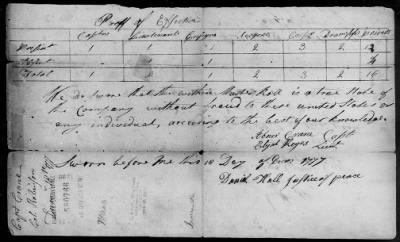 Proof of Effective
Captns Lieutenants Ensigns Serjents Corpl Drum & fifs privets
Present 1 1 1 2 3 2 12
Absent 1 4
Total 1 1 2 3 2 16
We do swear that the within Muster Roll is a true State of
the Company without fraud to these united States or
any individual, according to the best of our knowledge.
Abner Crane Capt
Elijah Royes Lieut
Sworn before me this 18 Day of June 1777
Daniel Hall Justice of peace
Capt Crane
Col. Robinson
1777
Mass